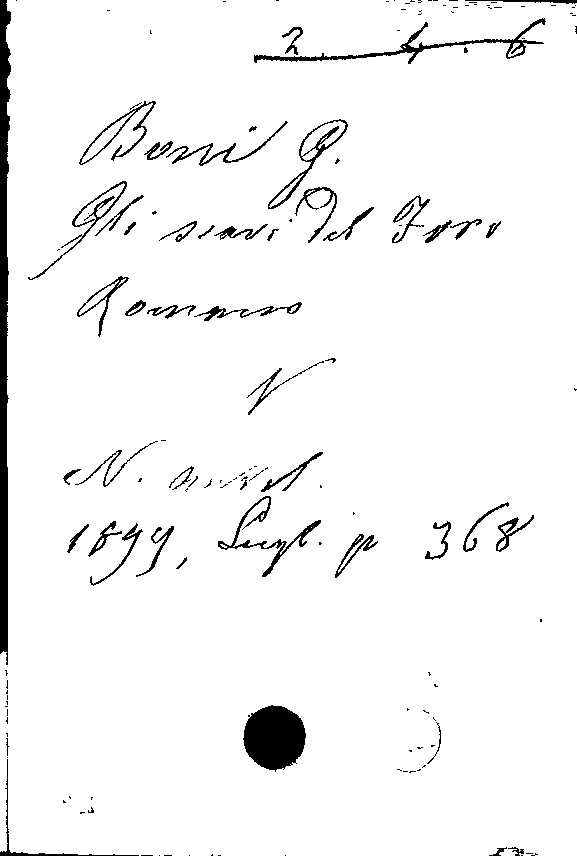 2. 4. 6
Boni G.
Gli scavi del Foro
Romano
V
N. antol.
1899, Lugl. p 368